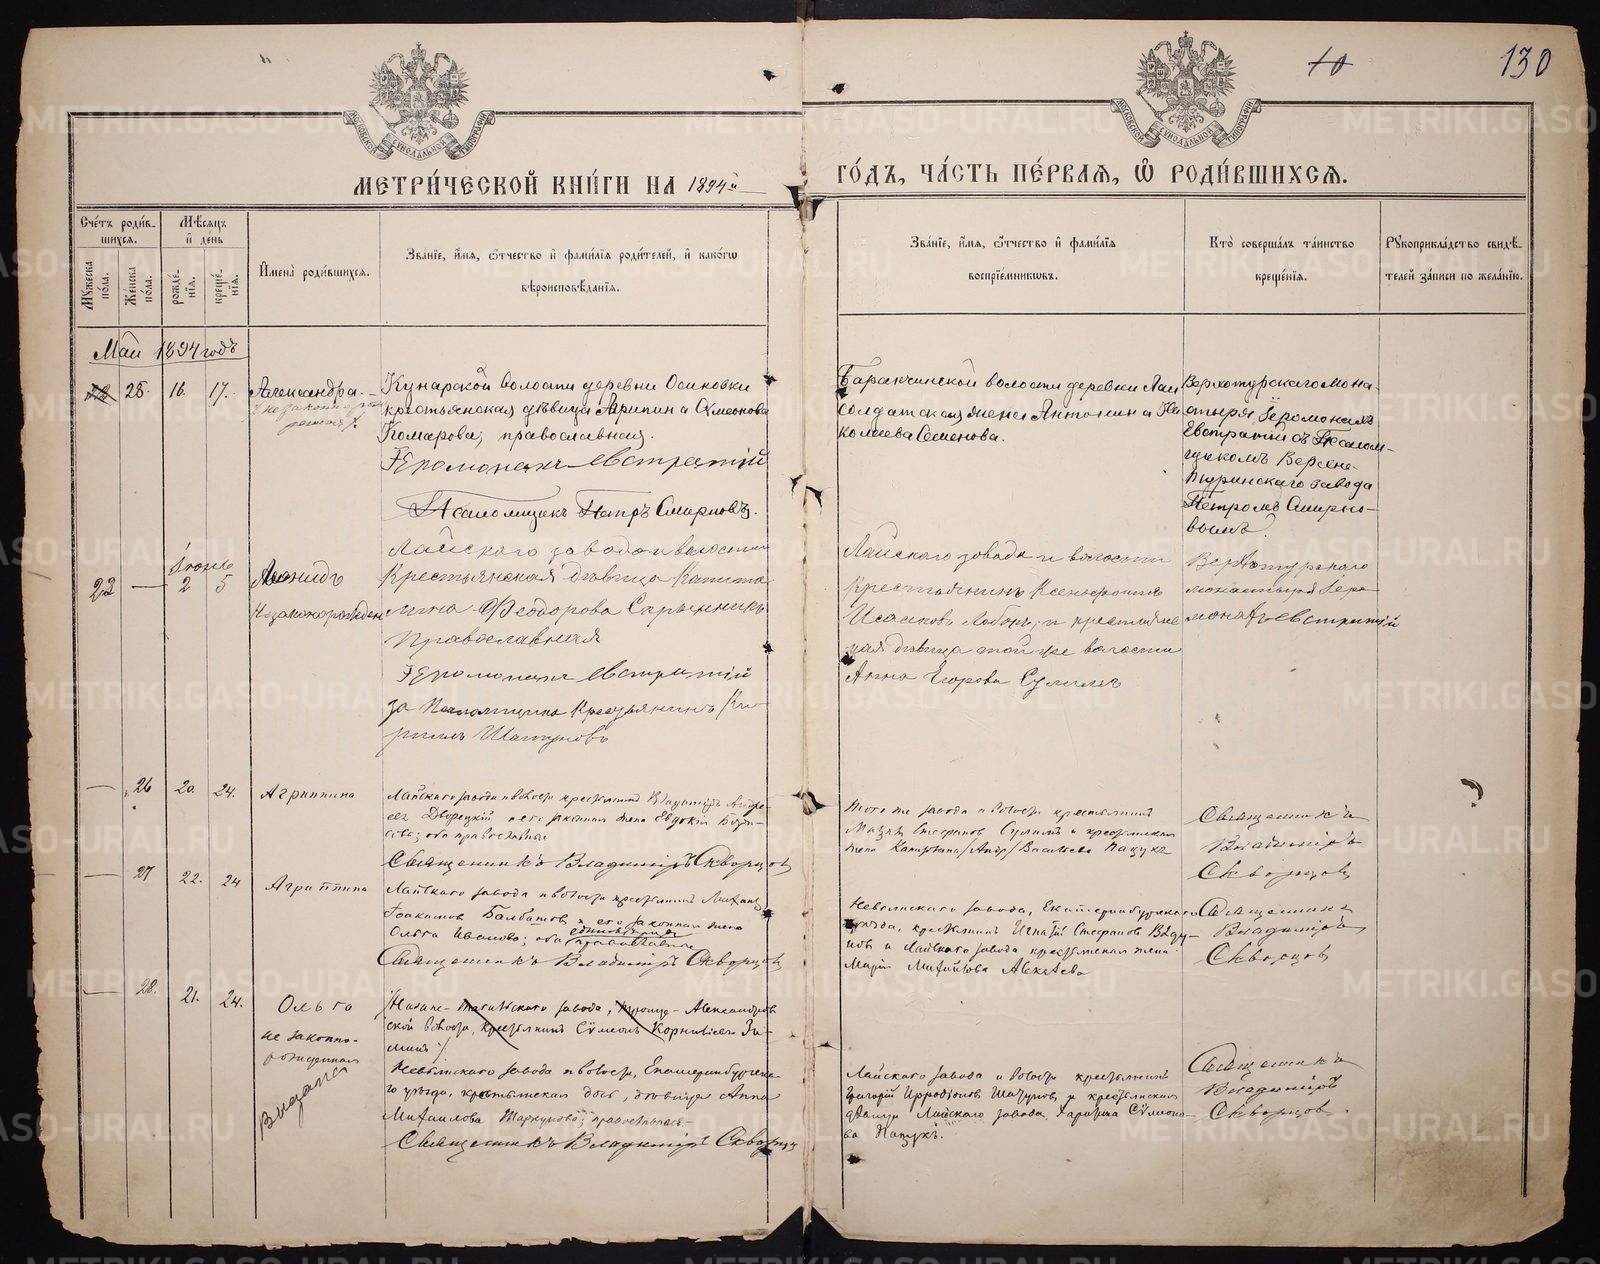 10
130
МОСКОВСКОЙ СѴНОДАЛЬНОЙ ТИПОГРАФІИ
МОСКОВСКОЙ СѴНОДАЛЬНОЙ ТИПОГРАФІИ
МЕТРИ́ЧЕСКОЙ КНИ́ГИ НА 1894й
ГО́ДЪ, ЧА́СТЬ ПЕ́РВАѦ, Ѡ РОДИ́ВШИХСѦ.
Сче́тъ роди́в-
шихсѧ.
Мꙋ́жеска по́ла.
Же́нска по́ла.
Мѣ́сѧцъ
и де́нь
рожде́-
нїѧ.
креще́-
нїѧ.
И҆мена̀ роди́вшихсѧ.
Зва́нїе, и҆́мѧ, ѻ҆́тчество и҆ фами́лїѧ роди́телей, и҆ како́гѡ
вѣроисповѣ́данїѧ.
Зва́нїе, и҆́мѧ, ѻ҆́тчество и҆ фами́лїѧ
воспрїе́мникѡвъ.
Кто̀ соверша́лъ та́инство
креще́нїѧ.
Рꙋкоприкла́дство свидѣ́-
телей за́писи по жела́нїю.
Май 1894 годъ
25. 16. 17. Александра.
Кунарской волости деревни Осиновки
крестьянская дѣвица Агрипина Сѵмеонова
Комарова, православная.
Іеромонахъ Евстратій
Псаломщикъ Петръ Смирновъ.
Баранчинской волости деревни Лаи
солдатская жена Антонина Ни
колаева Семенова.
Верхотурскаго мона-
стыря Іеромонахъ
Евстратій съ Псалом-
щикомъ Верхне-
Туринскаго завода
Петромъ Смирно-
вымъ.
Іюнь
22 — 2 5 Леонидъ
Незаконорожден
Лайскаго завода и волости
Крестьянская дѣвица Капито
лина Ѳеодорова Скрынникъ
Православная
Іеромонахъ Евстратій
за Псаломщика Крестьянинъ Ки-
риллъ Шатуновъ
Лайскаго завода и волости
крестьянинъ Ксенофонтъ
Исааковъ Лобокъ, и крестьянс
кая дѣвица той же волости
Анна Егорова Сулимъ
Верхотурскаго
монастыря Іеро
монахъ Евстратій
— 26 20. 24. Агриппина
Лайскаго завода и волости крестьянинъ Владиміръ Андре-
евъ Дворецкій и его законная жена Евдокія Бори-
сова; оба православные
Священникъ Владиміръ Скворцов
Того же завода и волости крестьянинъ
Стефановъ Сулимъ и крестьянская
жена Васильева Пацукъ
Священникъ
Владиміръ
Скворцовъ
— 27 22. 24 Агриппина
Лайскаго завода и волости крестьянинъ Михаилъ
Іоакимовъ Балбатовъ и его законная жена
Ольга Иванова; оба единовѣрцы
православные
Священникъ Владиміръ Скворцов
Невьянскаго завода, Екатеринбургскаго
уѣзда, крестьянинъ Игнатій Стефановъ Вѣду-
новъ и Лайскаго завода крестьянская жена
Марія Михайлова Авксѣева
Священникъ
Владиміръ
Скворцовъ
— 28. 21. 24. Ольга
не законно-
рожденная
Выдана
/Нижне-Тагильскаго завода, Троице-Александров
ской волости, крестьянинъ Сѵмеонъ Корниліевъ Зи-
минъ/
Невьянскаго завода и волости, Екатеринбургска-
го уѣзда, крестьянская дочь, дѣвица Анна
Михаилова православная.
Священникъ Владиміръ Скворцов
Лайскаго завода и волости крестьянинъ
Григорій Иродіоновъ Шатуновъ и крестьянская
дѣвица Лайскаго завода Сѵмеоно-
ва Пацукъ.
Священникъ
Владиміръ
Скворцовъ.
METRIKI.GASO-URAL.RU